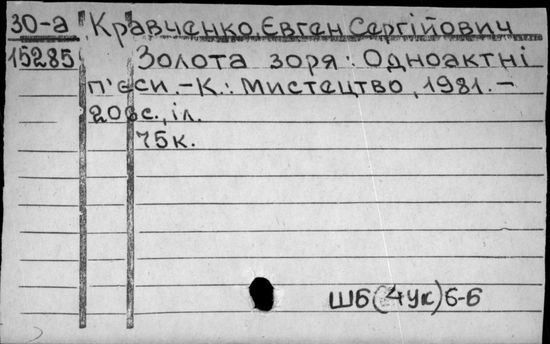 30-а Кравченко, Євген Сергійович
15285 Золота зоря: Одноактні
п'єси. - К.: Мистецтво, 1981. -
208 с., іл.
75к.
ШБ(4Ук)6-6